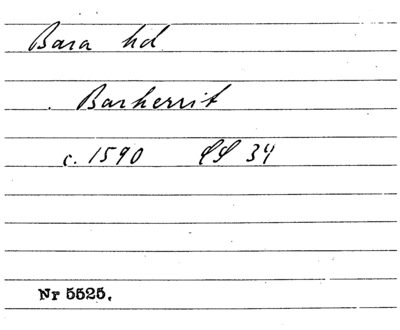 Bara hd
Barherrit
c. 1590 LL 34
Nr 5525.